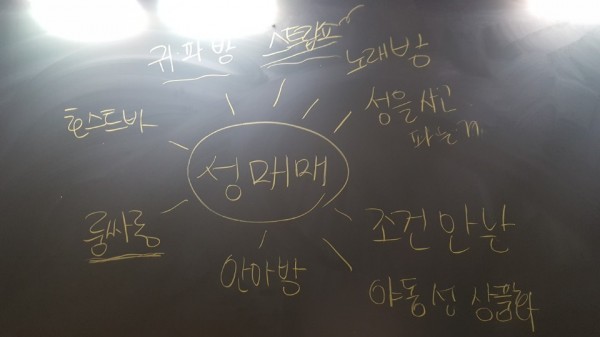 귀파방 스트립쇼 노래방
호스트바
성을 사고
파는거
성매매
룸싸롱
조건만남
안마방
야동 성 상품화